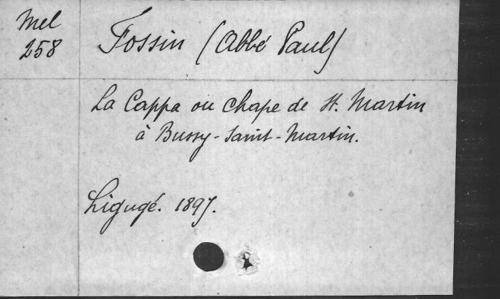 Mel
258
Fossin (Abbé Paul)
La Cappa ou Chape de St. Martin
à Bussy-Saint-Martin.
Ligugé. 1897.